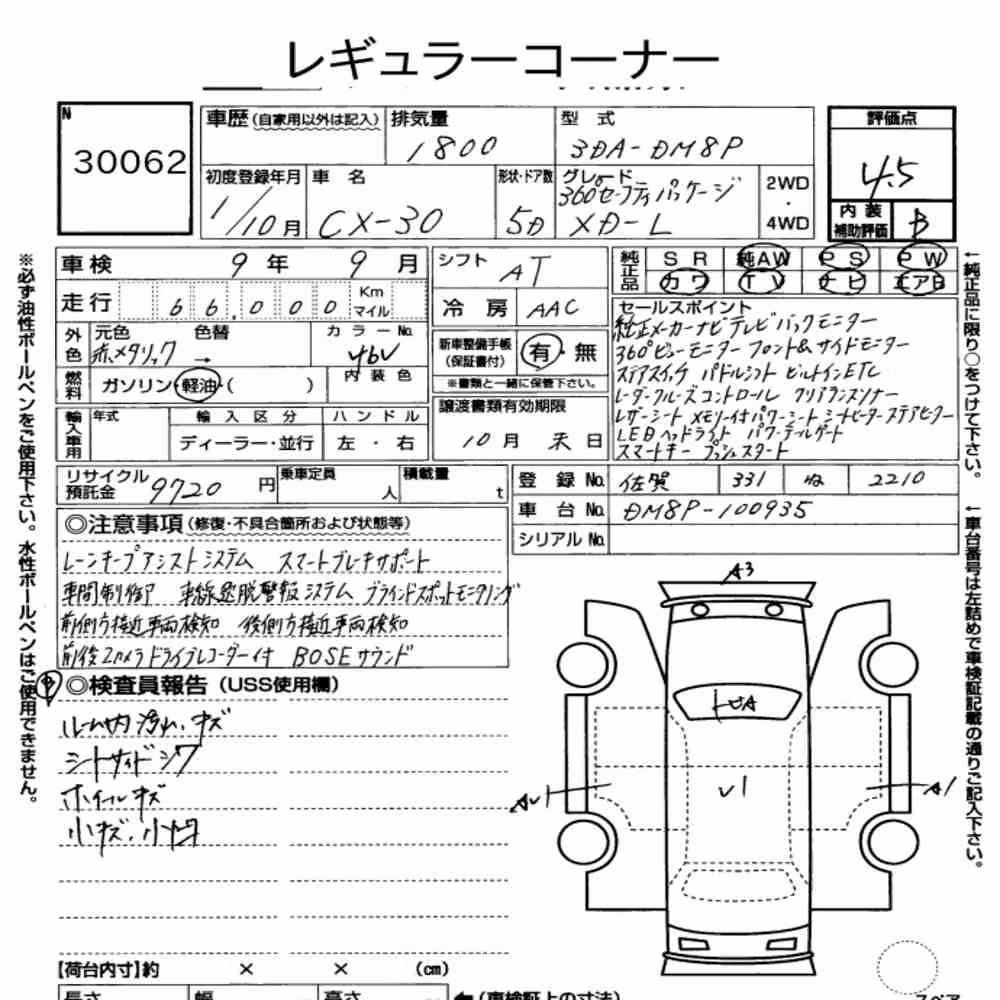 レギュラーコーナー
N
30062
車歴(自家用以外は記入)
排気量
1800
型式
3DA-DM8P
評価点
4.5
内装
補助評価
B
初度登録年月
1/10月
車名
CX-30
形状・ドア数
5D
グレード
360°セーフティパッケージ
XD-L
2WD
・
4WD
車検 9年 9月
走行 66,000 Km マイル
外色
元色 色替 カラーNo.
赤メタリック → 46V
燃料
ガソリン・軽油・( )
内装色
輸入車用
年式
輸入区分
ハンドル
ディーラー・並行
左・右
シフト AT
冷房 AAC
新車整備手帳
(保証書付)
有・無
※書類と一緒に保管下さい。
譲渡書類有効期限
10月 末日
純正品
SR 純AW PS PW
カワ TV ナビ エアB
セールスポイント
純正メーカーナビテレビバックモニター
360°ビューモニター フロント&サイドモニター
ステアスイッチ パドルシフト ビルトインETC
レーダークルーズコントロール クリアランスソナー
レザーシート メモリー付パワーシート シートヒーター ステアヒーター
LEDヘッドライト パワーテールゲート
スマートキー プッシュスタート
リサイクル
預託金 9720円
乗車定員 人
積載量 t
登録No. 佐賀 331 ね 2210
車台No. DM8P-100935
シリアルNo.
◎注意事項(修復・不具合箇所および状態等)
レーンキープアシストシステム スマートブレーキサポート
車間制御 車線逸脱警報システム ブラインドスポットモニタリング
前側方接近車両検知 後側方接近車両検知
前後2カメラドライブレコーダー付 BOSEサウンド
◎検査員報告(USS使用欄)
B
ルーム内汚れ、キズ
シートサイドシワ
ホイールキズ
小キズ、小凹
A3
U1
A1
【荷台内寸】約 × × (cm)
長さ 幅 高さ
(車検証上の寸法)
スペア
※必ず油性ボールペンをご使用下さい。水性ボールペンはご使用できません。
←純正品に限り○をつけて下さい。
←車台番号は左詰めで車検証記載の通りご記入下さい。